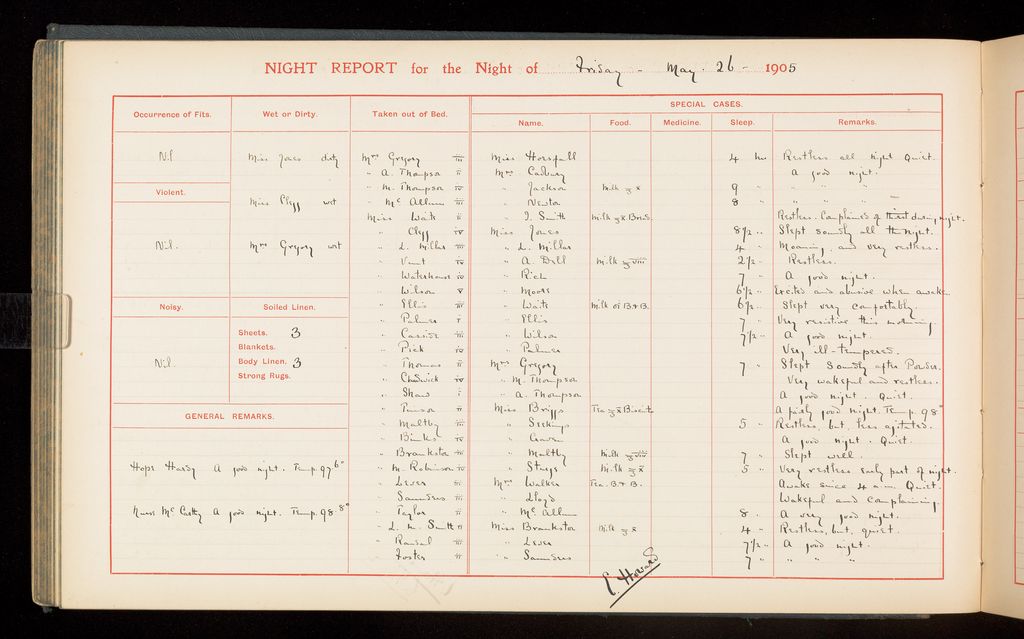 NIGHT REPORT for the Night of Friday - May. 26 - 1905
Occurrence of Fits.
Nil
Violent.
Nil.
Noisy.
Nil.
Wet or Dirty.
Miss Jones dirty
Miss Clegg wet
Mrs Gregory wet
Soiled Linen.
Sheets. 3
Blankets.
Body Linen. 3
Strong Rugs.
GENERAL REMARKS.
Hope Hardy A good night. Temp. 97.6°
Nurse McCarthy A good night. Temp. 98.8°
Taken out of Bed.
Mrs Gregory iii
" A. Thompson ii
" M. Thompson iv
" McAllum iii
Miss Waite ii
" Clegg iv
" L. Millar iii
" Vant iv
" Waterhouse iv
" Wilson v
" Ellis iii
" Palmer i
" Cassidi iii
" Pick iv
" Thomas ii
" Chadwick iv
" Shaw i
" Pearson ii
" Maltby iii
" Binks iv
" Brankston iii
" M. Robinson iv
" Lever iii
" Saunders iii
" Taylor ii
" L. M. Smith ii
" Ransal iii
" Foster ii
SPECIAL CASES.
Name. Food. Medicine. Sleep. Remarks.
Miss Horsfall 4 hrs Restless all night Quiet.
Mrs Cadbury A good night.
" Jackson Milk ℥x 9 " " " "
" Newton 8 " " " "
" I. Smith Milk ℥x Bread. Restless. Complained of thirst during night.
Miss Jones 8 1/2 " Slept soundly all the night.
" L. Millar 4 " Moaning, and very restless.
" A. Dell Milk ℥viii 2 1/2 " Restless.
" Rich 7 " A good night.
" Moore 6 1/2 " Excited and abusive when awake
" Waite Milk ℥i B+B. 6 1/2 " Slept very comfortably.
" Ellis 7 " Very resistive this morning
" Wilson 7 1/2 " A good night.
" Palmer Very ill-tempered.
Mrs Gregory 7 " Slept Soundly after Powder.
" M. Thompson Very wakeful and restless.
" A. Thompson A good night. Quiet.
Miss Briggs Tea ℥x Biscuits A fairly good night. Temp. 98°
" Seekings 5 " Restless, but less agitated.
" Craven A good night. Quiet.
" Maltby Milk ℥viii 7 " Slept well.
" Sturge Milk ℥x 5 " Very restless early part of night.
Mrs Walker Tea. B+B. Awake since 4 a.m. Quiet.
" Lloyd Wakeful and complaining.
" McAllum 8 " A very good night.
Miss Brankston Milk ℥x 4 " Restless, but, quiet.
" Lever 7 1/2 " A good night.
" Saunders 7 " " " "
E. Howard